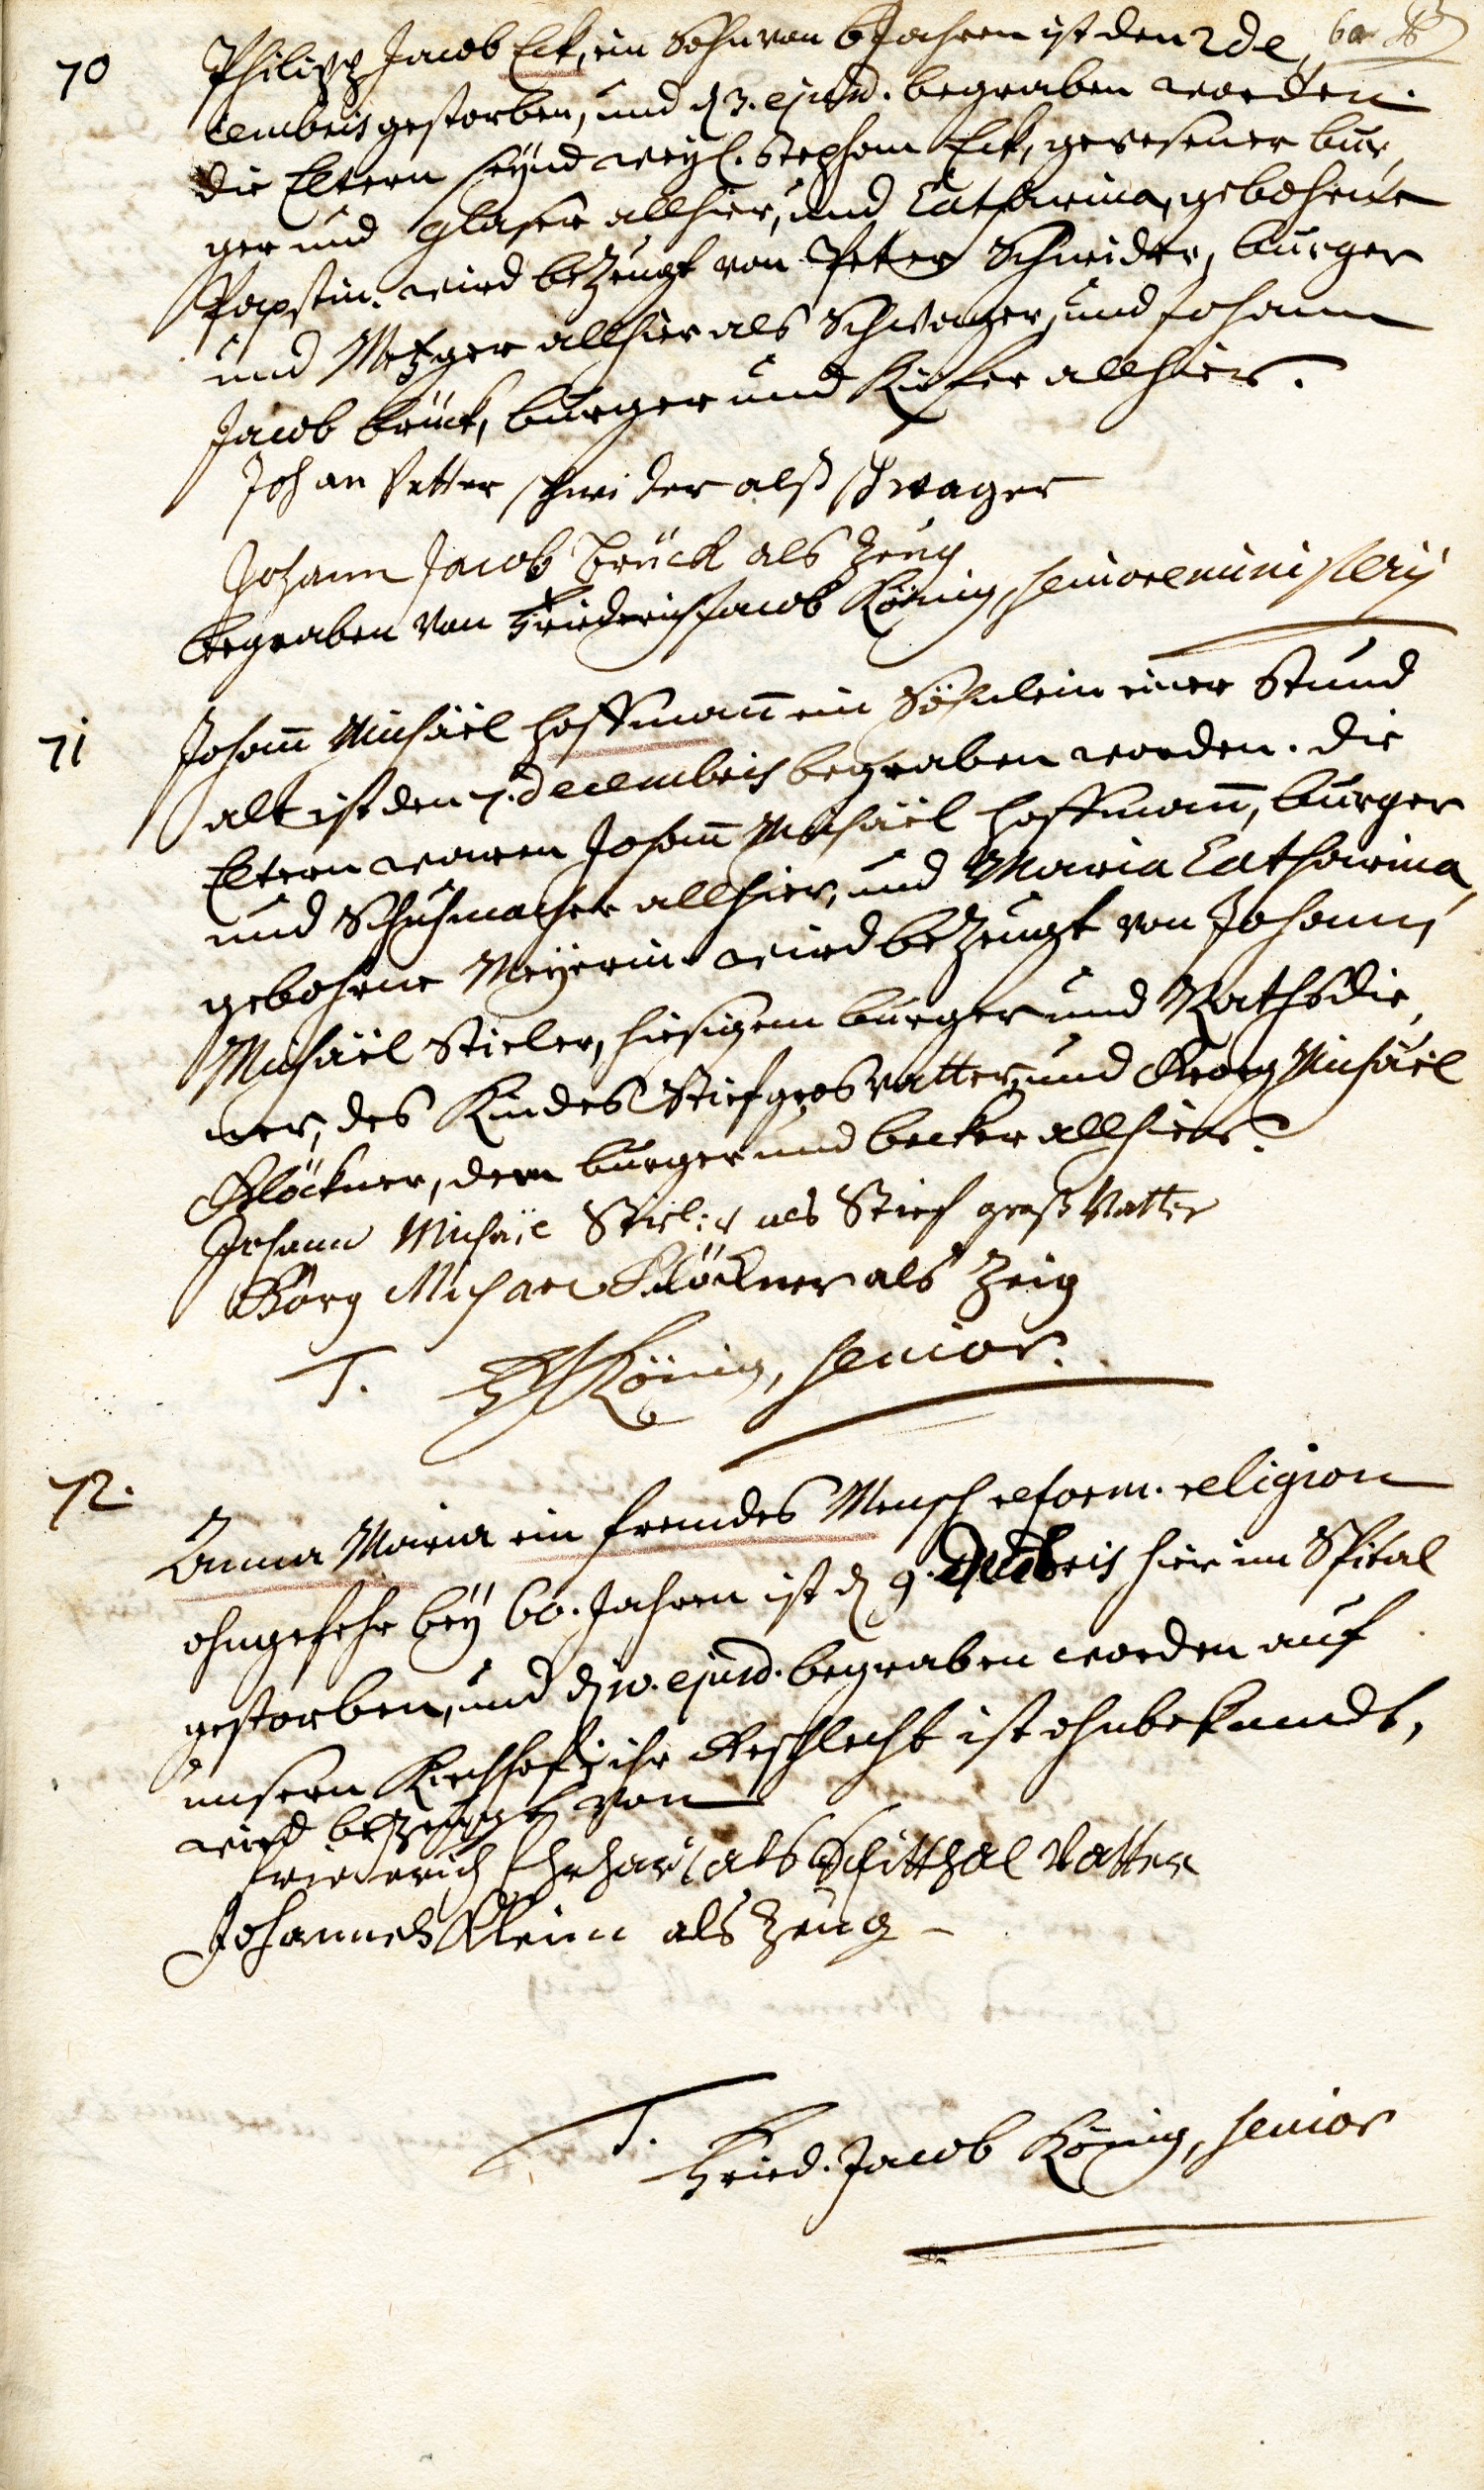 70
Philipp Jacob Eck, ein Sohn von 6 Jahren ist den 2 de,
cembris gestorben, und d 3. ejusd. begraben worden.
die Eltern seynd weyl. Stephan Eck, gewesener bur,
ger und glaser allhier, und Catharina, gebohrne
Papstin. wird bezeugt von Peter Schneider, burger
und Metzger allhier als Schwager, und Johann
Jacob brück, burger und Kiefer allhier.
Johan Petter schneider alß schwager
Johann Jacob Brück als Zeug
begraben von Friederich Jacob König, seniore ministerij
71
Johañ Michäel Hoffmañ ein Söhnlein einer Stund
alt ist den 7. decembris begraben worden. die
Eltern waren Johañ Michäel Hoffmañ, burger
und Schuhmacher allhier, und Maria Catharina,
gebohrne Meÿerin. wird bezeugt von Johann
Michäel Stieler, hiesigem burger und Rathsdie,
ner, des Kindes Stiefgrosvatter, und Georg Michäel
Glöckner, dem burger und becker allhier.
Johann Michäel Stieler als Stief groß Vatter
Görg Michael Klöckner als Zeig
T. FJKönig, senior.
72.
Anna Maria ein fremdes Mensch reform. religion
ohngefehr beÿ 60. Jahren ist d 9. decbris hier im Spital
gestorben, und d 10. ejusd. begraben worden auf
unsern Kirchhof; ihr Geschlecht ist ohnbekandt,
wird bezeugt von
friederich als Spitthal Vatter
Johannes Klein als Zeug
T. Fried. Jacob König, senior